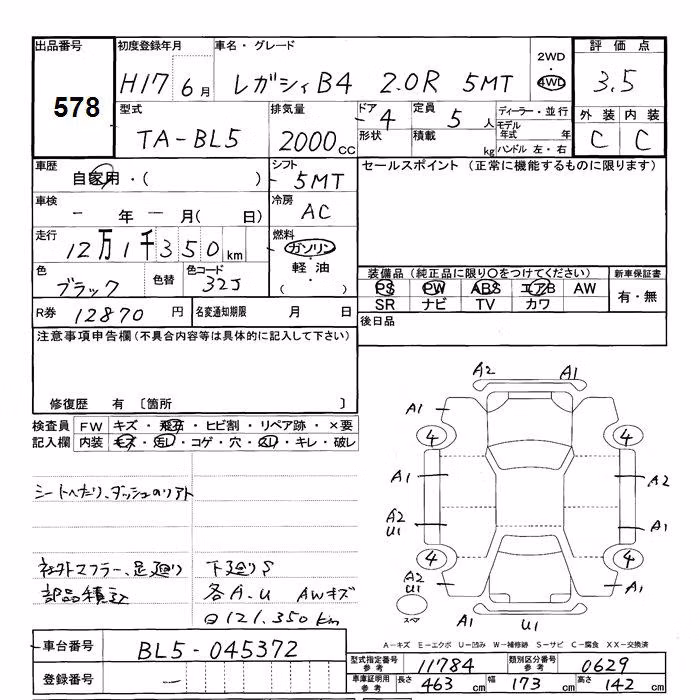 出品番号 初度登録年月 車名・グレード 評価点
578 H17 6月 レガシィB4 2.0R 5MT 2WD・4WD 3.5
型式 排気量 ドア 4 定員 5人 ディーラー・並行 外装 内装
TA-BL5 2000cc 形状 積載 kg モデル年式 年 C C
ハンドル 左・右
車歴 シフト セールスポイント (正常に機能するものに限ります)
自家用・( ) 5MT
車検 冷房
- 年 - 月( 日) AC
走行 燃料
12万1千350km ガソリン
色 色替 色コード 軽油
ブラック 32J ・( )
装備品 (純正品に限り○をつけてください) 新車保証書
PS PW ABS エアB AW 有・無
SR ナビ TV カワ
R券 12870円 名変通知期限 月 日 後日品
注意事項申告欄(不具合内容等は具体的に記入して下さい)
修復歴 有 〔箇所 〕
検査員 FW キズ・飛石・ヒビ割・リペア跡・×要
記入欄 内装 キズ・汚レ・コゲ・穴・スリ・キレ・破レ
シートへたり、ダッシュのリアト
社外マフラー、足廻り 下廻りS
部品積込 各A.U AWキズ
121.350km
A2 A1
A1
4 4
A1 A2
A2 U1 A1
4 4
A2 U1 A1
スペア A1 U1
A-キズ E-エクボ U-凹み W-補修跡 S-サビ C-腐食 XX-交換済
車台番号 BL5-045372
登録番号 -
型式指定番号 参考 11784 類別区分番号 参考 0629
車庫証明用 参考 長さ 463cm 幅 173cm 高さ 142cm